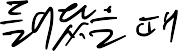 들어있을 때